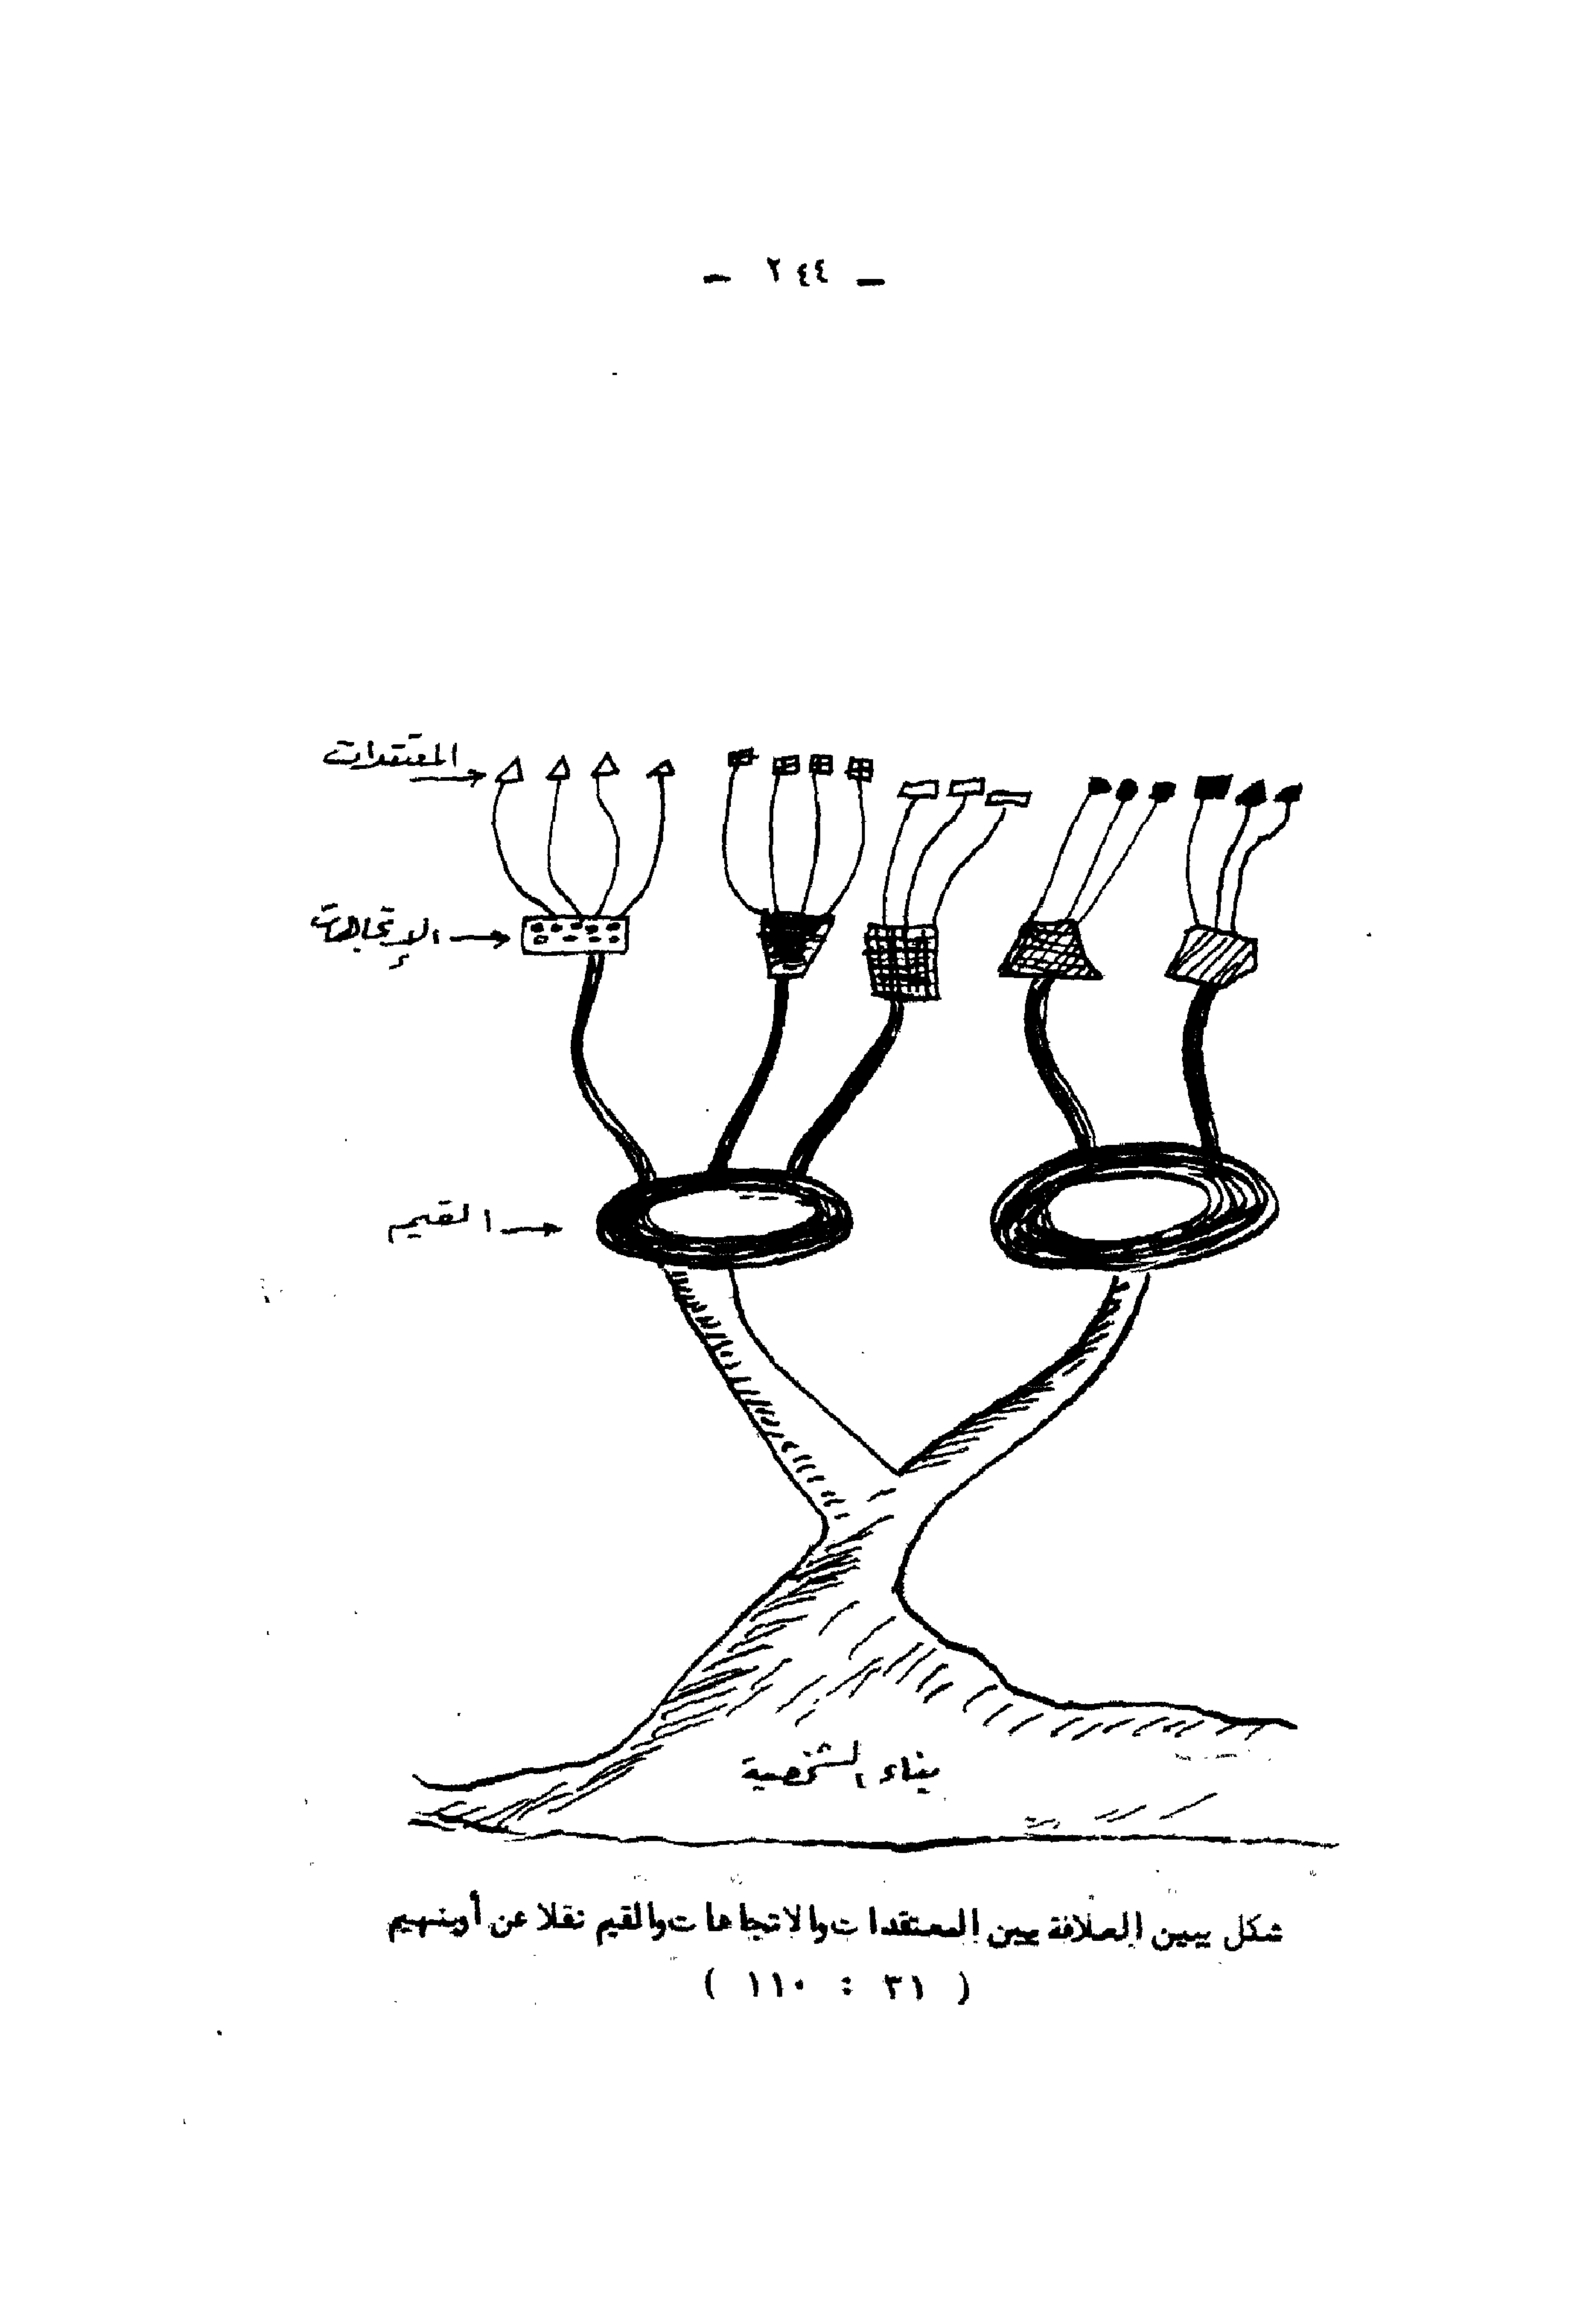 - ٢٤٤ -
المعتقدات
الإتجاهات
القيم
بناء الشخصية
شكل يبين العلاقة بين المعتقدات والاتجاهات والقيم نقلا عن أوبنهيم
( ٣١ : ١١٠ )